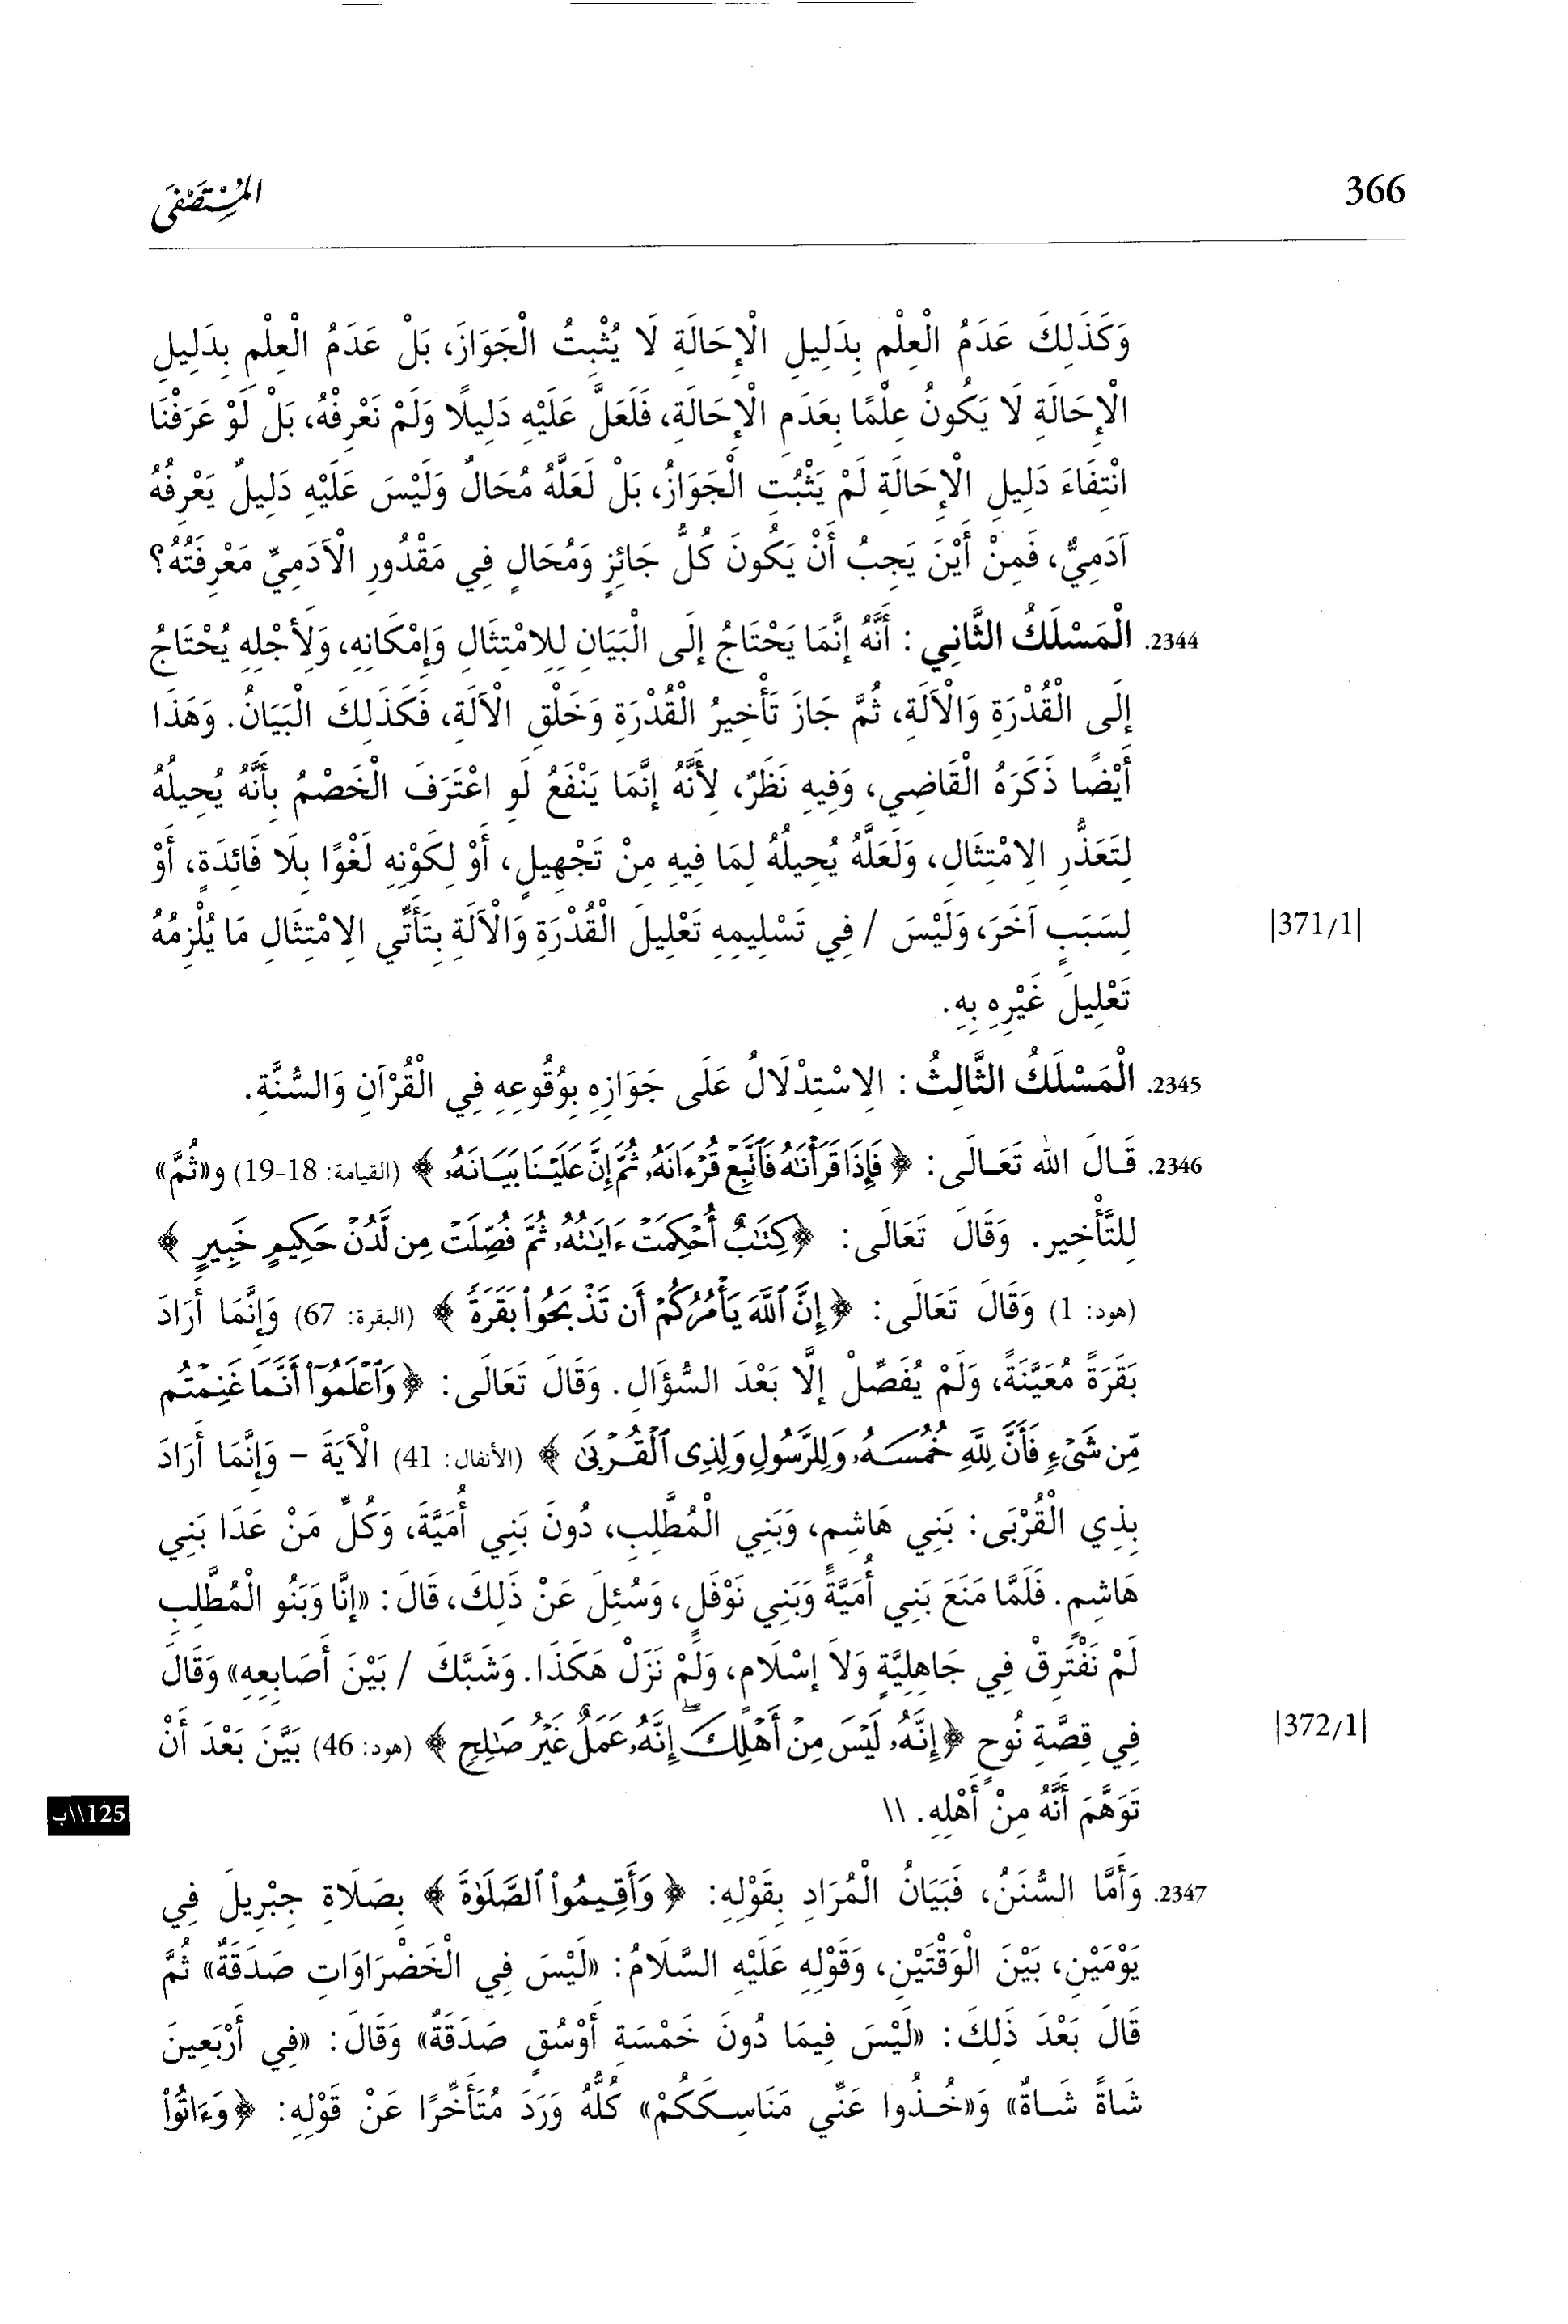 366
المستصفى
وَكَذَلِكَ عَدَمُ الْعِلْمِ بِدَلِيلِ الْإِحَالَةِ لَا يُثْبِتُ الْجَوَازَ، بَلْ عَدَمُ الْعِلْمِ بِدَلِيلِ
الْإِحَالَةِ لَا يَكُونُ عِلْمًا بِعَدَمِ الْإِحَالَةِ، فَلَعَلَّ عَلَيْهِ دَلِيلًا وَلَمْ نَعْرِفْهُ، بَلْ لَوْ عَرَفْنَا
انْتِفَاءَ دَلِيلِ الْإِحَالَةِ لَمْ يَثْبُتِ الْجَوَازُ، بَلْ لَعَلَّهُ مُحَالٌ وَلَيْسَ عَلَيْهِ دَلِيلٌ يَعْرِفُهُ
آدَمِيٌّ، فَمِنْ أَيْنَ يَجِبُ أَنْ يَكُونَ كُلُّ جَائِزٍ وَمُحَالٍ فِي مَقْدُورِ الْآدَمِيِّ مَعْرِفَتُهُ؟
2344. الْمَسْلَكُ الثَّانِي : أَنَّهُ إِنَّمَا يَحْتَاجُ إِلَى الْبَيَانِ لِلِامْتِثَالِ وَإِمْكَانِهِ، وَلِأَجْلِهِ يُحْتَاجُ
إِلَى الْقُدْرَةِ وَالْآلَةِ، ثُمَّ جَازَ تَأْخِيرُ الْقُدْرَةِ وَخَلْقِ الْآلَةِ، فَكَذَلِكَ الْبَيَانُ. وَهَذَا
أَيْضًا ذَكَرَهُ الْقَاضِي، وَفِيهِ نَظَرٌ، لِأَنَّهُ إِنَّمَا يَنْفَعُ لَوِ اعْتَرَفَ الْخَصْمُ بِأَنَّهُ يُحِيلُهُ
لِتَعَذُّرِ الِامْتِثَالِ، وَلَعَلَّهُ يُحِيلُهُ لِمَا فِيهِ مِنْ تَجْهِيلٍ، أَوْ لِكَوْنِهِ لَغْوًا بِلَا فَائِدَةٍ، أَوْ
لِسَبَبٍ آخَرَ، وَلَيْسَ / فِي تَسْلِيمِهِ تَعْلِيلَ الْقُدْرَةِ وَالْآلَةِ بِتَأَتِّي الِامْتِثَالِ مَا يُلْزِمُهُ |371/1|
تَعْلِيلَ غَيْرِهِ بِهِ.
2345. الْمَسْلَكُ الثَّالِثُ : الِاسْتِدْلَالُ عَلَى جَوَازِهِ بِوُقُوعِهِ فِي الْقُرْآنِ وَالسُّنَّةِ.
2346. قَالَ الله تَعَالَى: ﴿ فَإِذَا قَرَأْنَٰهُ فَٱتَّبِعْ قُرْءَانَهُۥ ثُمَّ إِنَّ عَلَيْنَا بَيَانَهُۥ ﴾ (القيامة: 18-19) و«ثُمَّ»
لِلتَّأْخِيرِ. وَقَالَ تَعَالَى: ﴿كِتَٰبٌ أُحْكِمَتْ ءَايَٰتُهُۥ ثُمَّ فُصِّلَتْ مِن لَّدُنْ حَكِيمٍ خَبِيرٍ ﴾
(هود: 1) وَقَالَ تَعَالَى: ﴿ إِنَّ ٱللَّهَ يَأْمُرُكُمْ أَن تَذْبَحُوا۟ بَقَرَةً ﴾ (البقرة: 67) وَإِنَّمَا أَرَادَ
بَقَرَةً مُعَيَّنَةً، وَلَمْ يُفَصِّلْ إِلَّا بَعْدَ السُّؤَالِ. وَقَالَ تَعَالَى: ﴿ وَٱعْلَمُوٓا۟ أَنَّمَا غَنِمْتُم
مِّن شَىْءٍ فَأَنَّ لِلَّهِ خُمُسَهُۥ وَلِلرَّسُولِ وَلِذِى ٱلْقُرْبَىٰ ﴾ (الأنفال: 41) الْآيَةَ – وَإِنَّمَا أَرَادَ
بِذِي الْقُرْبَى: بَنِي هَاشِمٍ، وَبَنِي الْمُطَّلِبِ، دُونَ بَنِي أُمَيَّةَ، وَكُلِّ مَنْ عَدَا بَنِي
هَاشِمٍ. فَلَمَّا مَنَعَ بَنِي أُمَيَّةَ وَبَنِي نَوْفَلٍ، وَسُئِلَ عَنْ ذَلِكَ، قَالَ: «إِنَّا وَبَنُو الْمُطَّلِبِ
لَمْ نَفْتَرِقْ فِي جَاهِلِيَّةٍ وَلاَ إِسْلَامٍ، وَلَمْ نَزَلْ هَكَذَا. وَشَبَّكَ / بَيْنَ أَصَابِعِهِ» وَقَالَ
فِي قِصَّةِ نُوحٍ ﴿إِنَّهُۥ لَيْسَ مِنْ أَهْلِكَ ۖ إِنَّهُۥ عَمَلٌ غَيْرُ صَٰلِحٍ ﴾ (هود: 46) بَيَّنَ بَعْدَ أَنْ |372/1|
تَوَهَّمَ أَنَّهُ مِنْ أَهْلِهِ. \\ 125\\ب
2347. وَأَمَّا السُّنَنُ، فَبَيَانُ الْمُرَادِ بِقَوْلِهِ: ﴿ وَأَقِيمُوا۟ ٱلصَّلَوٰةَ ﴾ بِصَلَاةِ جِبْرِيلَ فِي
يَوْمَيْنِ، بَيْنَ الْوَقْتَيْنِ، وَقَوْلِهِ عَلَيْهِ السَّلَامُ: «لَيْسَ فِي الْخَضْرَاوَاتِ صَدَقَةٌ» ثُمَّ
قَالَ بَعْدَ ذَلِكَ: «لَيْسَ فِيمَا دُونَ خَمْسَةِ أَوْسُقٍ صَدَقَةٌ» وَقَالَ: «فِي أَرْبَعِينَ
شَاةً شَاةٌ» وَ«خُذُوا عَنِّي مَنَاسِكَكُمْ» كُلُّهُ وَرَدَ مُتَأَخِّرًا عَنْ قَوْلِهِ: ﴿وَءَاتُوا۟